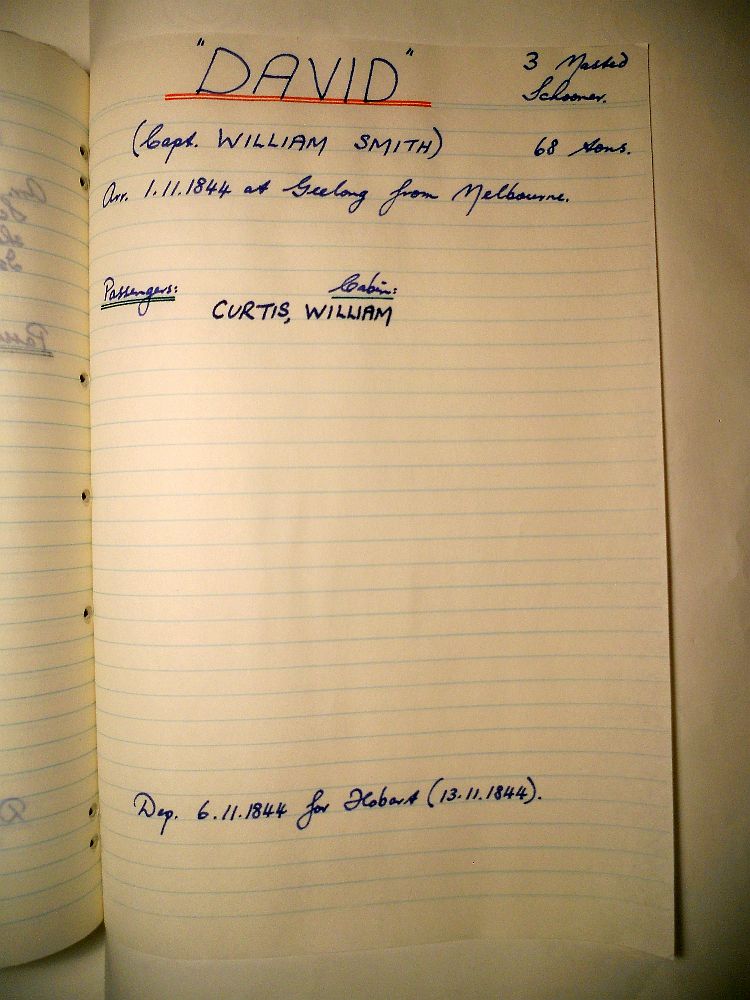 "DAVID"
3 Masted
Schooner.
(Capt. WILLIAM SMITH)
68 tons.
Arr. 1.11.1844 at Geelong from Melbourne.
Passengers:
Cabin:
CURTIS, WILLIAM
Dep. 6.11.1844 for Hobart (13.11.1844).